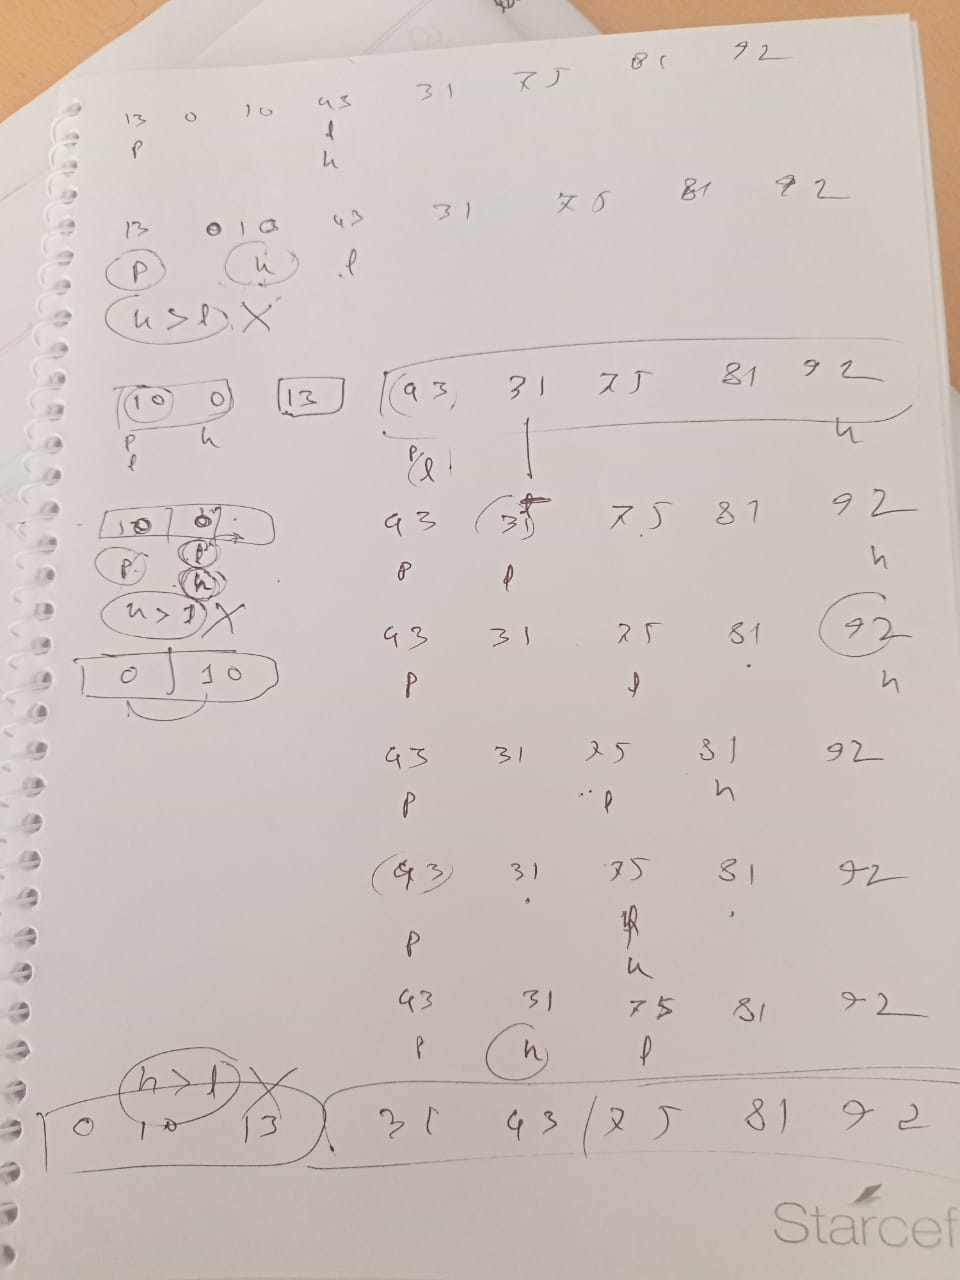 13 0 10 43 31 75 81 92
p l
h
13 0 10 43 31 75 81 92
p h l
h > l X
10 0 13 43 31 75 81 92
p h p l h
l
10 0 43 31 75 81 92
p l p l h
h
h > l X 43 31 75 81 92
0 10 p l h
43 31 75 81 92
p l h
43 31 75 81 92
p h
43 31 75 81 92
p h l
h > l X
0 10 13 31 43 75 81 92
Starcef